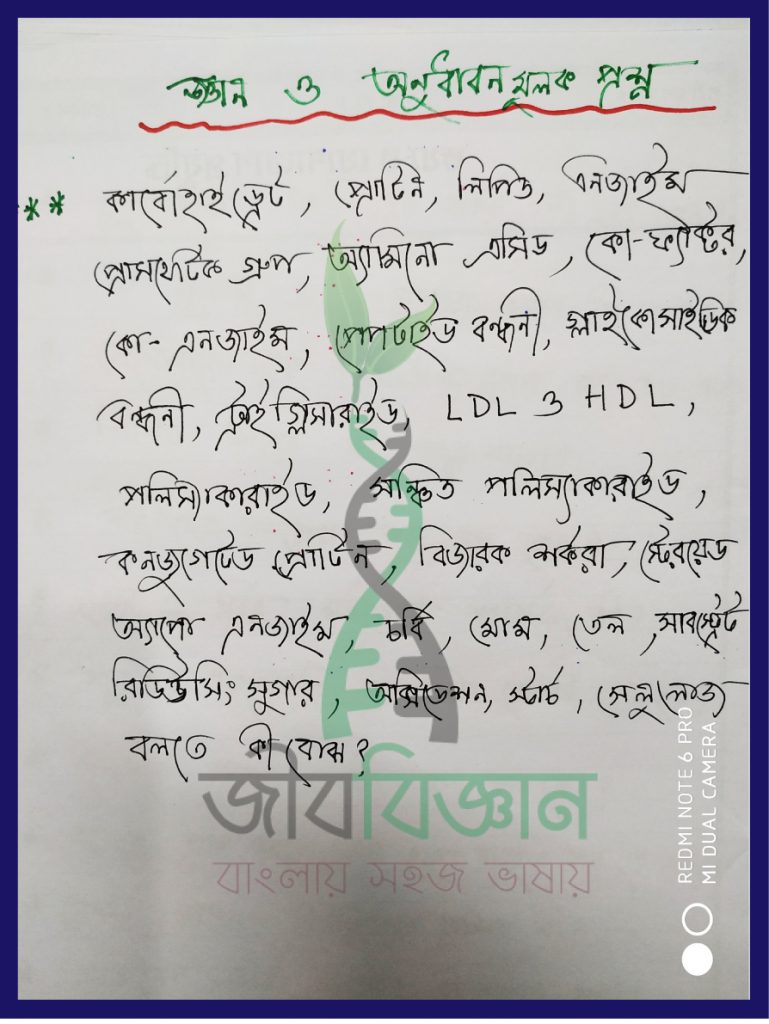 জ্ঞান ও অনুধাবন মূলক প্রশ্ন
** কার্বোহাইড্রেট, প্রোটিন, লিপিড, এনজাইম
প্রোসথেটিক গ্রুপ, অ্যামিনো এসিড, কো-ফ্যাক্টর,
কো-এনজাইম, পেপটাইড বন্ধনী, গ্লাইকোসাইডিক
বন্ধনী, ট্রাই গ্লিসারাইড, LDL ও HDL,
পলিস্যাকারাইড, সঞ্চিত পলিস্যাকারাইড,
কনজুগেটেড প্রোটিন, বিজারক শর্করা, স্টেরয়েড
অ্যাপো এনজাইম, চর্বি, মোম, তেল, সাবস্ট্রেট
রিডিউসিং সুগার, অক্সিডেশন, স্টার্চ, সেলুলোজ
বলতে কী বোঝ?
জীববিজ্ঞান
বাংলায় সহজ ভাষায়
REDMI NOTE 6 PRO
MI DUAL CAMERA